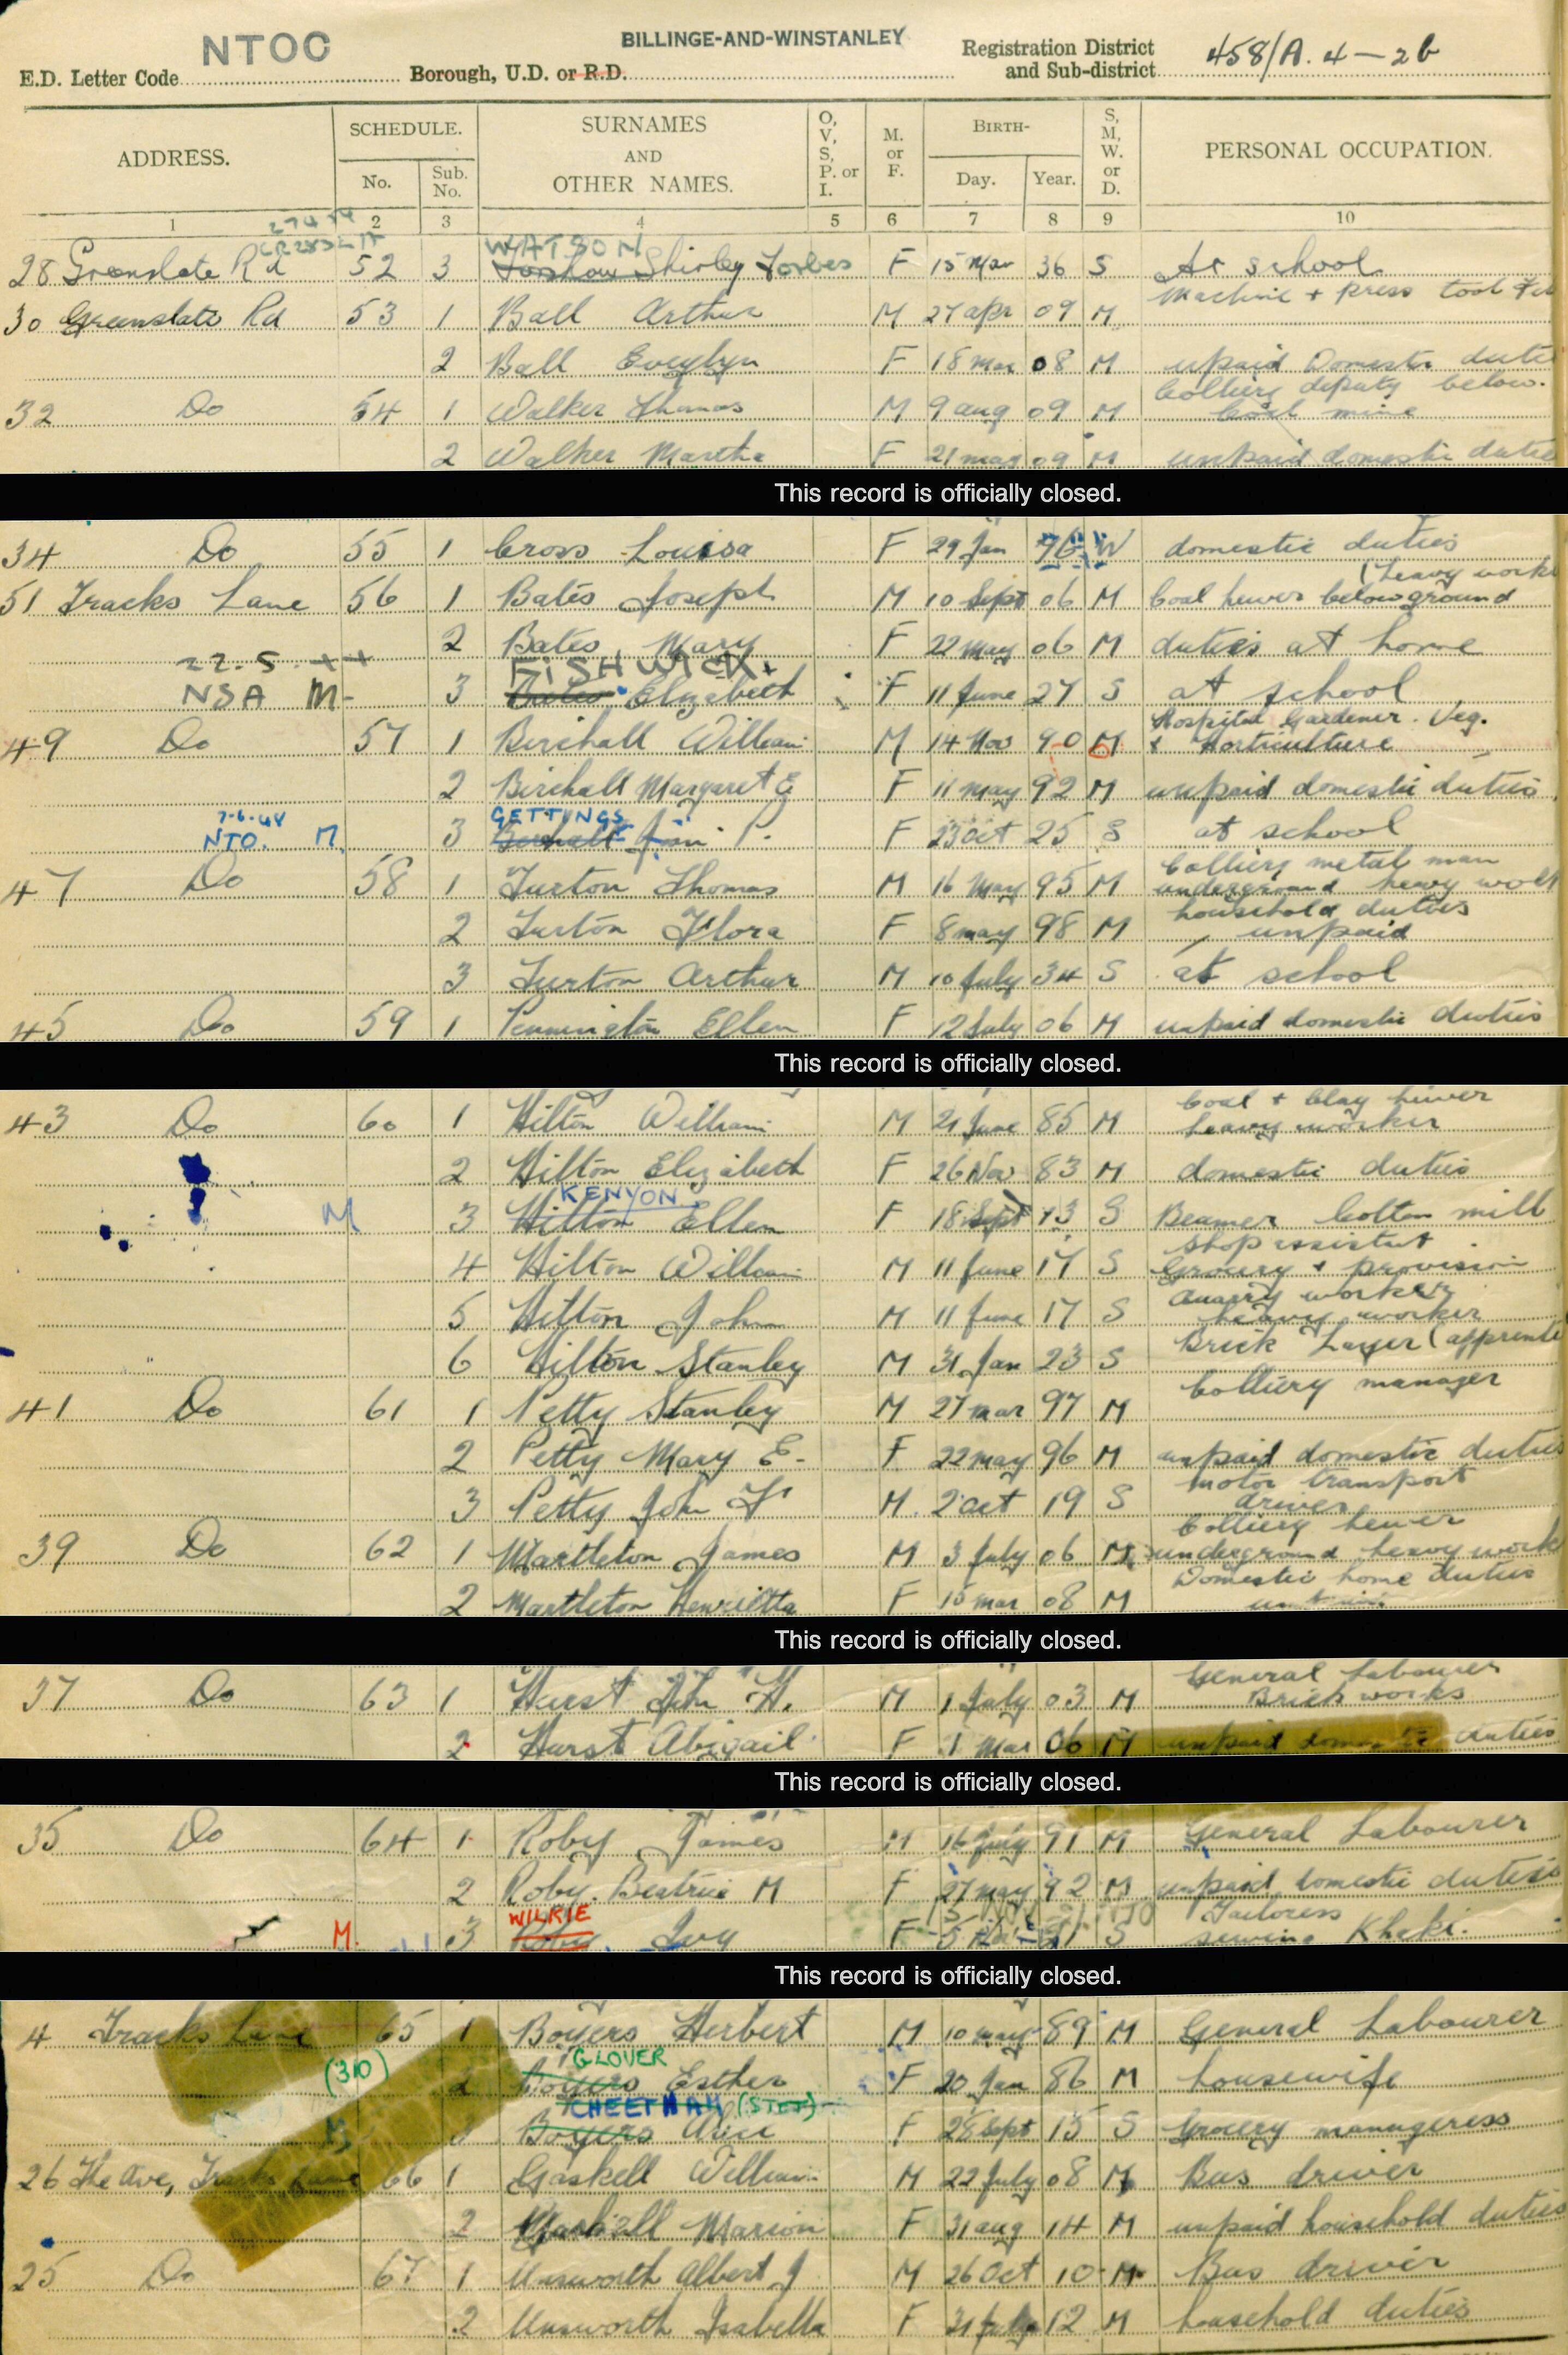 NTOC
BILLINGE-AND-WINSTANLEY
E.D. Letter Code Borough, U.D. or R.D. Registration District and Sub-district 458/A. 4-2b
ADDRESS. SCHEDULE. No. Sub. No. SURNAMES AND OTHER NAMES. O, V, S, P. or I. M. or F. BIRTH- Day. Year. S, M, W. or D. PERSONAL OCCUPATION.
1 2 3 4 5 6 7 8 9 10
WATSON
28 Greenslate Rd 52 3 Shirley Forbes F 15 Mar 36 S At school
Machine + press tool
30 Greenslate Rd 53 1 Ball Arthur M 27 apr 09 M
2 Ball Evelyn F 18 mar 08 M unpaid Domestic dutie
Colliery deputy below.
32 Do 54 1 Walker Thomas M 9 aug 09 M Coal mine
2 Walker Martha F 21 may 09 M unpaid domestic dutie
This record is officially closed.
34 Do 55 1 Cross Louisa F 29 Jan 76 W domestic duties
(heavy work
51 Tracks Lane 56 1 Bates Joseph M 10 Sept 06 M Coal hewer below ground
2 Bates Mary F 22 may 06 M duties at home
22.5.44 FISHWICK
NSA M- 3 Bates Elizabeth F 11 June 27 S at school
Hospital Gardener. Veg.
49 Do 57 1 Birchall William M 14 Nov 90 M & Horticulture
2 Birchall Margaret E F 11 may 92 M unpaid domestic duties
GETTINGS
NTO. M. 3 Birchall P. F 23 Oct 25 S at school
Colliery metal man
47 Do 58 1 Turton Thomas M 16 May 95 M underground heavy work
household duties
2 Turton Flora F 8 may 98 M unpaid
3 Turton Arthur M 10 July 34 S at school
45 Do 59 1 Pennington Ellen F 12 July 06 M unpaid domestic duties
This record is officially closed.
Coal + Clay hewer
43 Do 60 1 Hilton William M 21 June 85 M heavy worker
2 Hilton Elizabeth F 26 Nov 83 M domestic duties
KENYON
M 3 Hilton Ellen F 18 Sept 13 S Beamer Cotton mill
Shop assistant
4 Hilton William M 11 June 17 S Grocery + provision
Quarry worker
5 Hilton John M 11 June 17 S heavy worker
Brick Layer (apprenti
6 Hilton Stanley M 31 Jan 23 S
Colliery manager
41 Do 61 1 Petty Stanley M 27 mar 97 M
2 Petty Mary E. F 22 may 96 M unpaid domestic duties
motor transport
3 Petty John F M 2 Oct 19 S driver
Colliery hewer
39 Do 62 1 Martleton James M 3 July 06 M underground heavy work
Domestic home duties
2 Martleton Henrietta F 15 mar 08 M
This record is officially closed.
General Labourer
37 Do 63 1 Hurst John H. M 1 July 03 M Brick works
2 Hurst Abigail F 1 Mar 06 M unpaid domestic duties
This record is officially closed.
35 Do 64 1 Roby James M 16 July 91 M General Labourer
2 Roby Beatrice M F 27 may 92 M unpaid domestic duties
WILKIE Tailoress
M. 3 Roby Ivy F S sewing Khaki.
This record is officially closed.
4 Tracks Lane 65 1 Boyers Herbert M 10 may 89 M General Labourer
GLOVER
(310) 2 Boyers Esther F 20 Jan 86 M housewife
CHEETHAM (STET)
3 Boyers Alice F 28 Sept 15 S Grocery manageress
26 The Ave, Tracks Lane 66 1 Gaskell William M 22 July 08 M Bus driver
2 Gaskell Marion F 31 aug 14 M unpaid household duties
25 Do 67 1 Unsworth Albert J M 26 Oct 10 M Bus driver
2 Unsworth Isabella F 31 July 12 M household duties